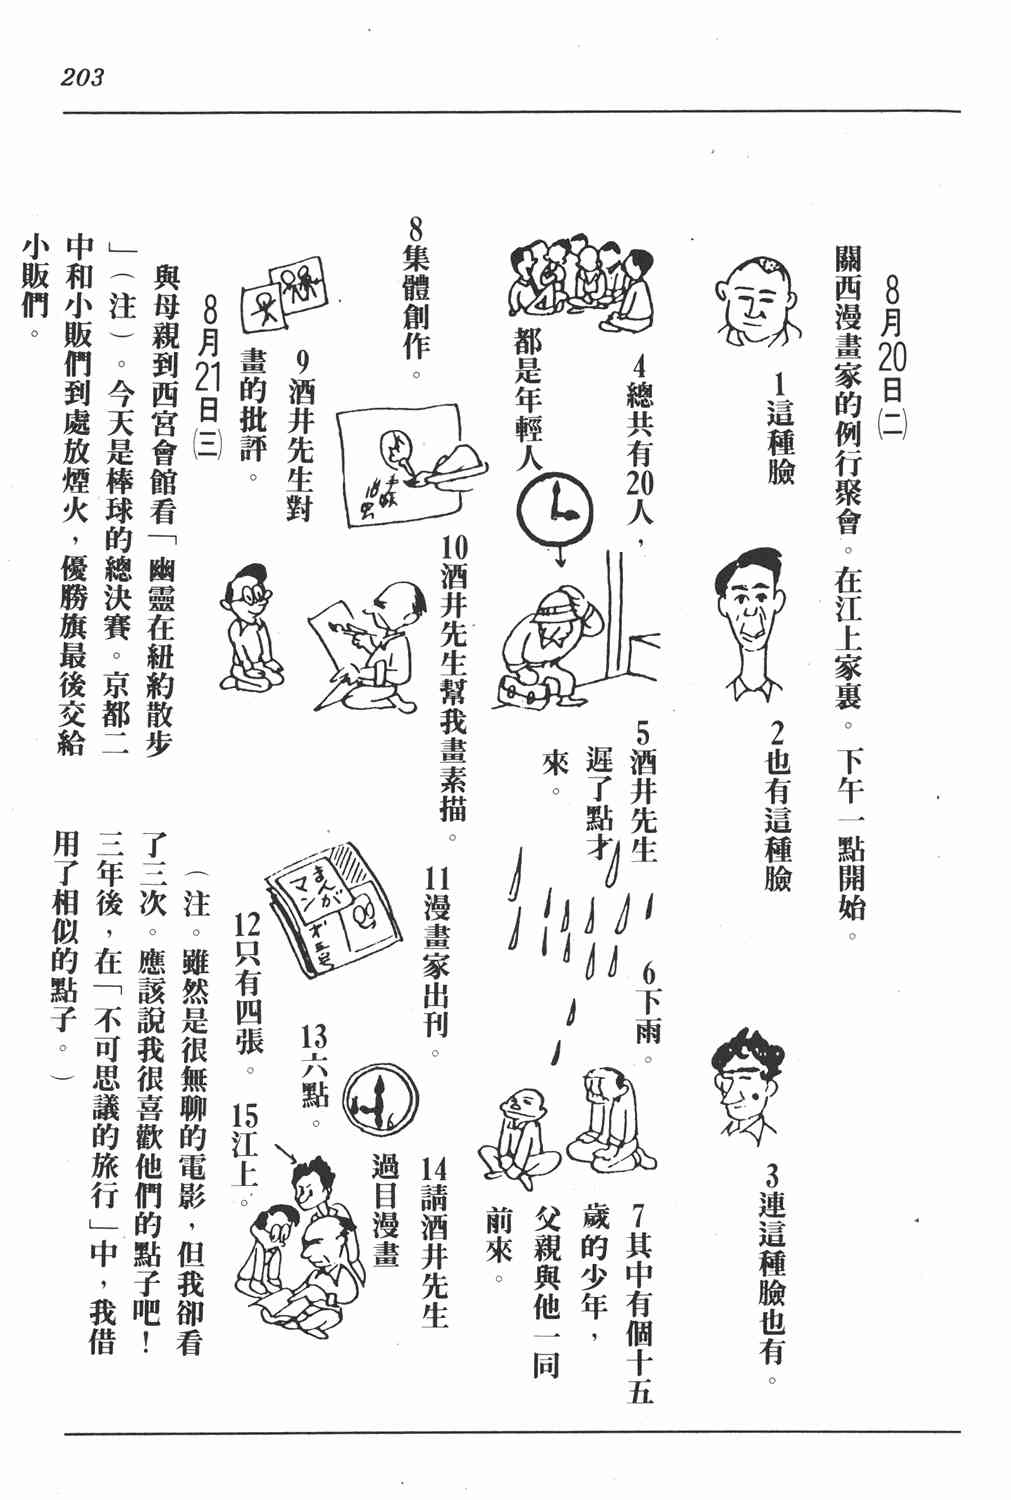 203
8月20日㈡
關西漫畫家的例行聚會。在江上家裏。下午一點開始。
1這種臉
2也有這種臉
3連這種臉也有。
4總共有20人，
都是年輕人
5酒井先生
遲了點才
來。
6下雨。
7其中有個十五
歲的少年，
父親與他一同
前來。
8集體創作。
9酒井先生對
畫的批評。
10酒井先生幫我畫素描。
11漫畫家出刊。
まんが
マン
12只有四張。
13六點。
14請酒井先生
過目漫畫
15江上。
8月21日㈢
與母親到西宮會館看「幽靈在紐約散步
」（注）。今天是棒球的總決賽。京都二
中和小販們到處放煙火，優勝旗最後交給
小販們。
（注。雖然是很無聊的電影，但我卻看
了三次。應該說我很喜歡他們的點子吧！
三年後，在「不可思議的旅行」中，我借
用了相似的點子。）